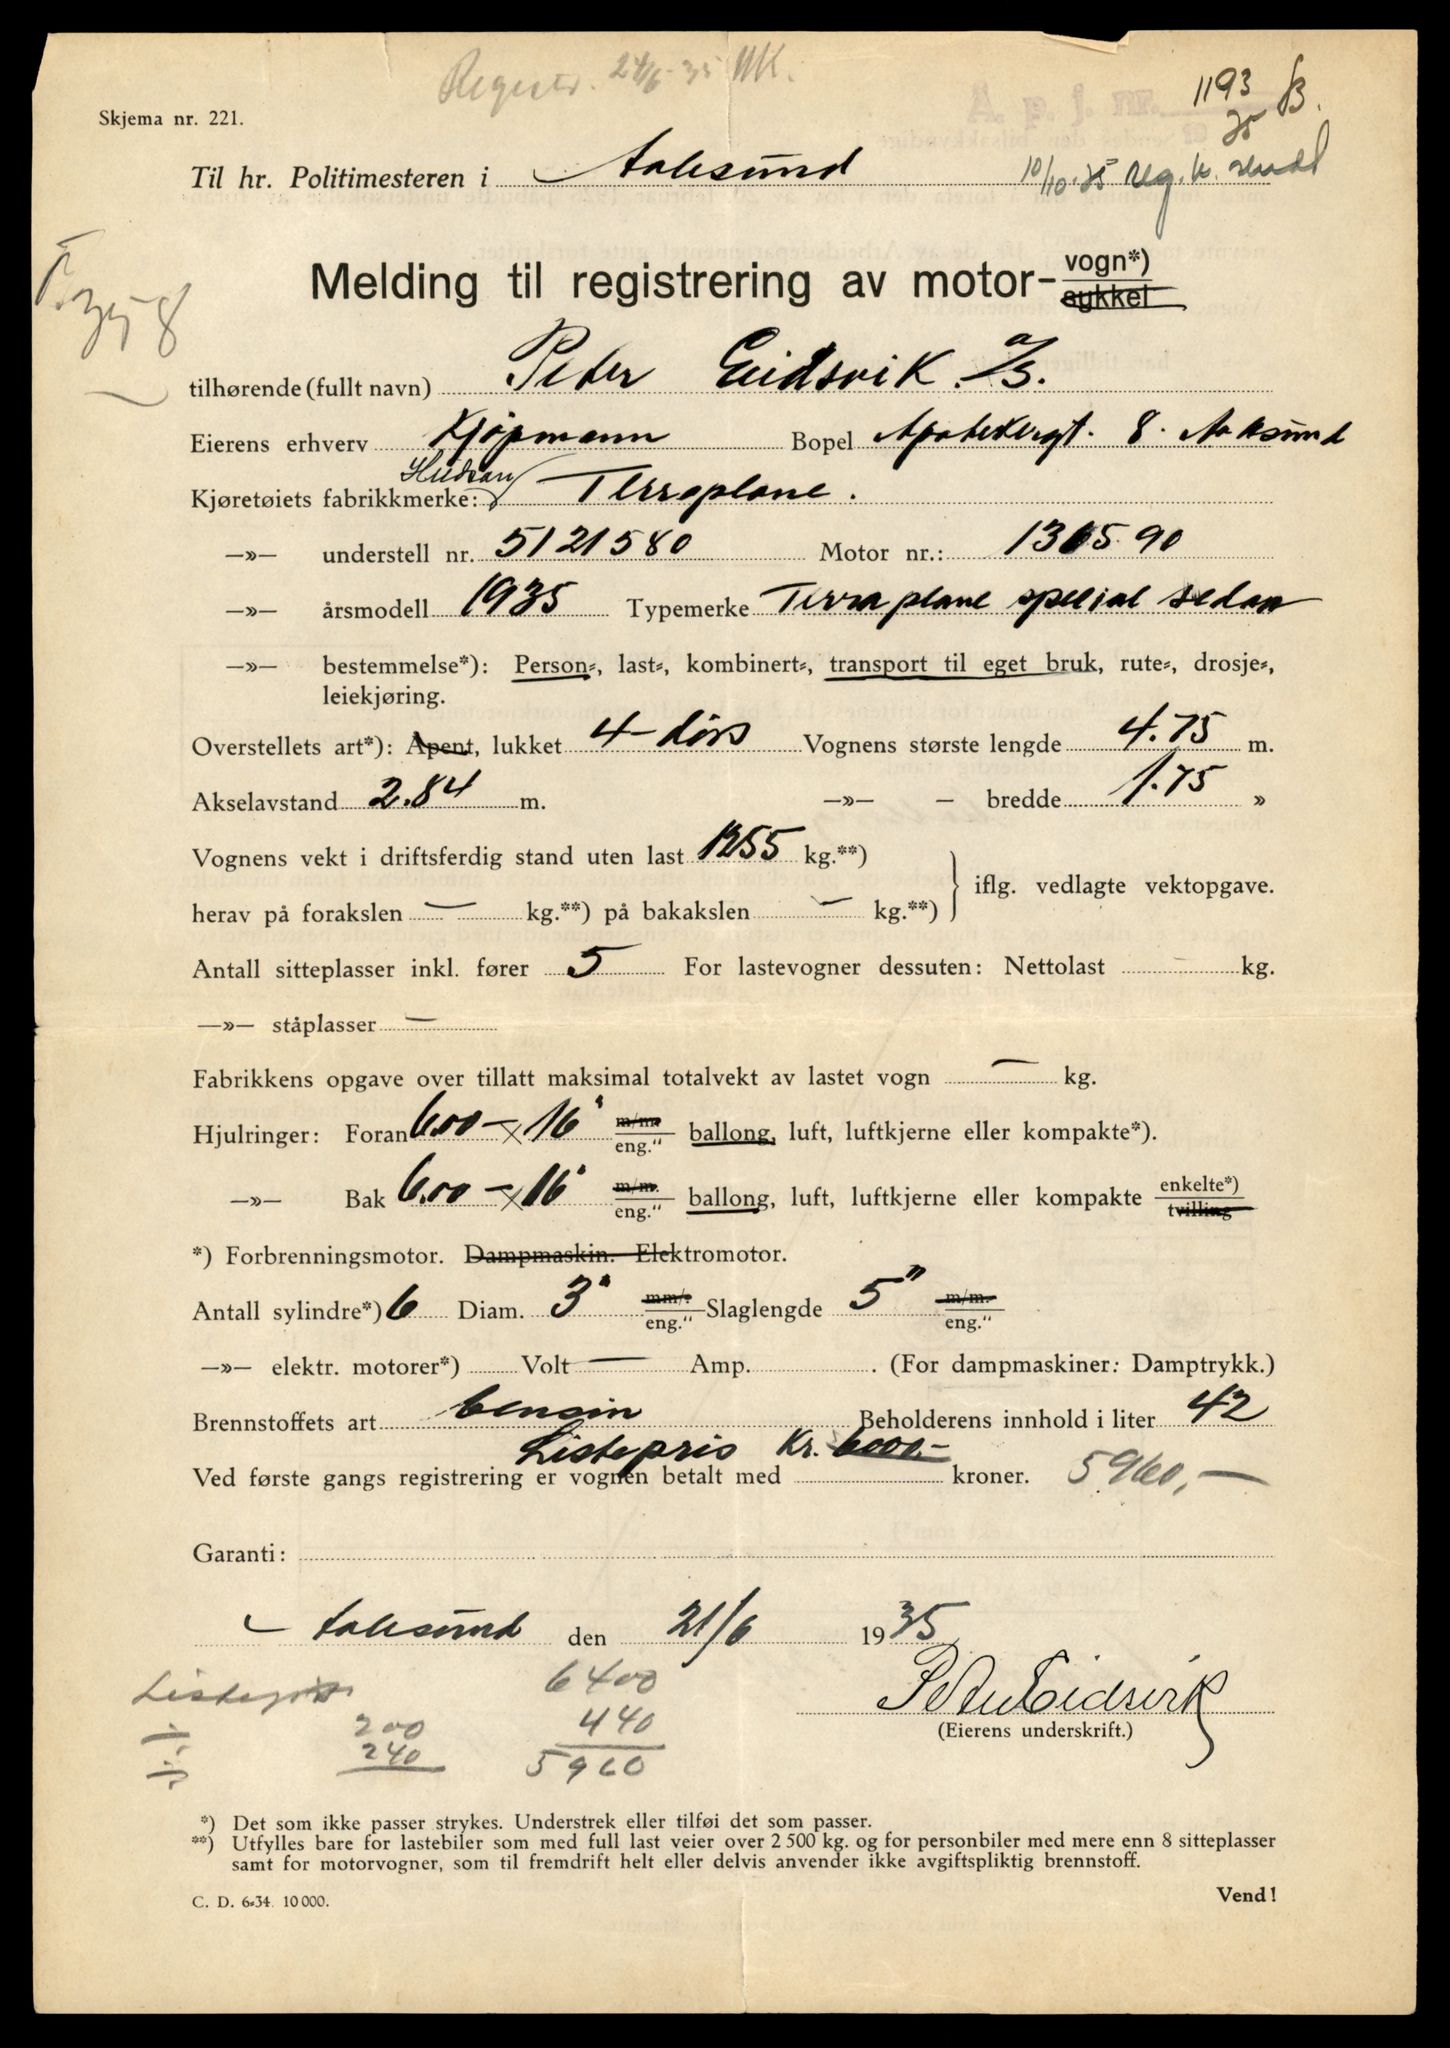 Registr. 24/6-35 
Skjema nr. 221.
A. p. j. nr. 1193 B.
35
Til hr. Politimesteren i Aalesund
10/10-35 reg. k. sendt
Melding til registrering av motor- vogn*)
sykkel
tilhørende (fullt navn) Peter Eidsvik A/S.
Eierens erhverv Kjøpmann Bopel Apotekergt. 8. Aalesund
Kjøretøiets fabrikkmerke: Hudson Terraplane.
—»— understell nr. 5121580 Motor nr.: 130590
—»— årsmodell 1935 Typemerke Terraplane special sedan
—»— bestemmelse*): Person-, last-, kombinert-, transport til eget bruk, rute-, drosje-,
leiekjøring.
Overstellets art*): Åpent, lukket 4-dørs Vognens største lengde 4.75 m.
Akselavstand 2.84 m. —»— — bredde 1.75 »
Vognens vekt i driftsferdig stand uten last 1255 kg.**)
iflg. vedlagte vektopgave.
herav på forakslen — kg.**) på bakakslen — kg.**)
Antall sitteplasser inkl. fører 5 For lastevogner dessuten: Nettolast — kg.
—»— ståplasser —
Fabrikkens opgave over tillatt maksimal totalvekt av lastet vogn — kg.
Hjulringer: Foran 6.00 – × 16" m/m. eng." ballong, luft, luftkjerne eller kompakte*).
—»— Bak 6.00 – × 16" m/m. eng." ballong, luft, luftkjerne eller kompakte enkelte*) tvilling
*) Forbrenningsmotor. Dampmaskin. Elektromotor.
Antall sylindre*) 6 Diam. 3" mm/. eng." Slaglengde 5" m/m. eng."
—»— elektr. motorer*) Volt — Amp. . (For dampmaskiner: Damptrykk.)
Brennstoffets art bensin Beholderens innhold i liter 42
Listepris Kr. 6000.-
Ved første gangs registrering er vognen betalt med kroner. 5960,-
Garanti:
Aalesund den 21/6 1935
Listepris 6400
÷ 200 440
÷ 240 5960
Peter Eidsvik
(Eierens underskrift.)
*) Det som ikke passer strykes. Understrek eller tilføi det som passer.
**) Utfylles bare for lastebiler som med full last veier over 2 500 kg. og for personbiler med mere enn 8 sitteplasser
samt for motorvogner, som til fremdrift helt eller delvis anvender ikke avgiftspliktig brennstoff.
C. D. 6-34. 10 000.
Vend!